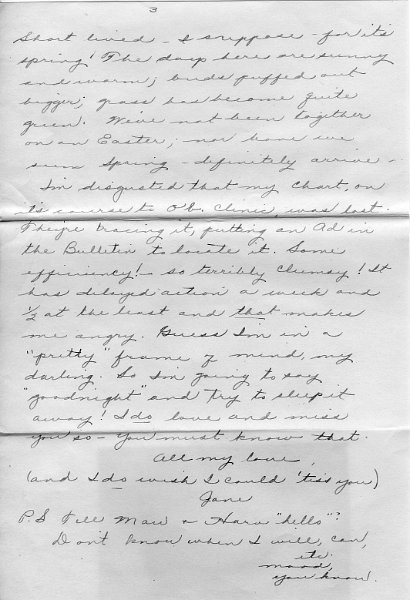 3
Short lived - I suppose - for its
spring! The days here are sunny
and warm; buds puffed out
bigger; grass has become quite
green. We've not been together
on an Easter; nor have we
seen Spring - definitely arrive -
I'm disgusted that my chart, on
its course to Ob. Clinic, was lost.
They're tracing it, putting an Ad in
the Bulletin to locate it. Some
efficiency! - so terribly clumsy! It
has delayed action a week and
1/2 at the least and that makes
me angry. Guess I'm in a
"pretty" frame of mind, my
darling. So I'm going to say
"goodnight" and try to sleep it
away! I do love and miss
you so - You must know that.
All my love,
(and I do wish I could 'tiss you)
Jane
P.S Tell Maw & Harv "hello"?
Don't know when I will, can,
etc.
mood,
you know.